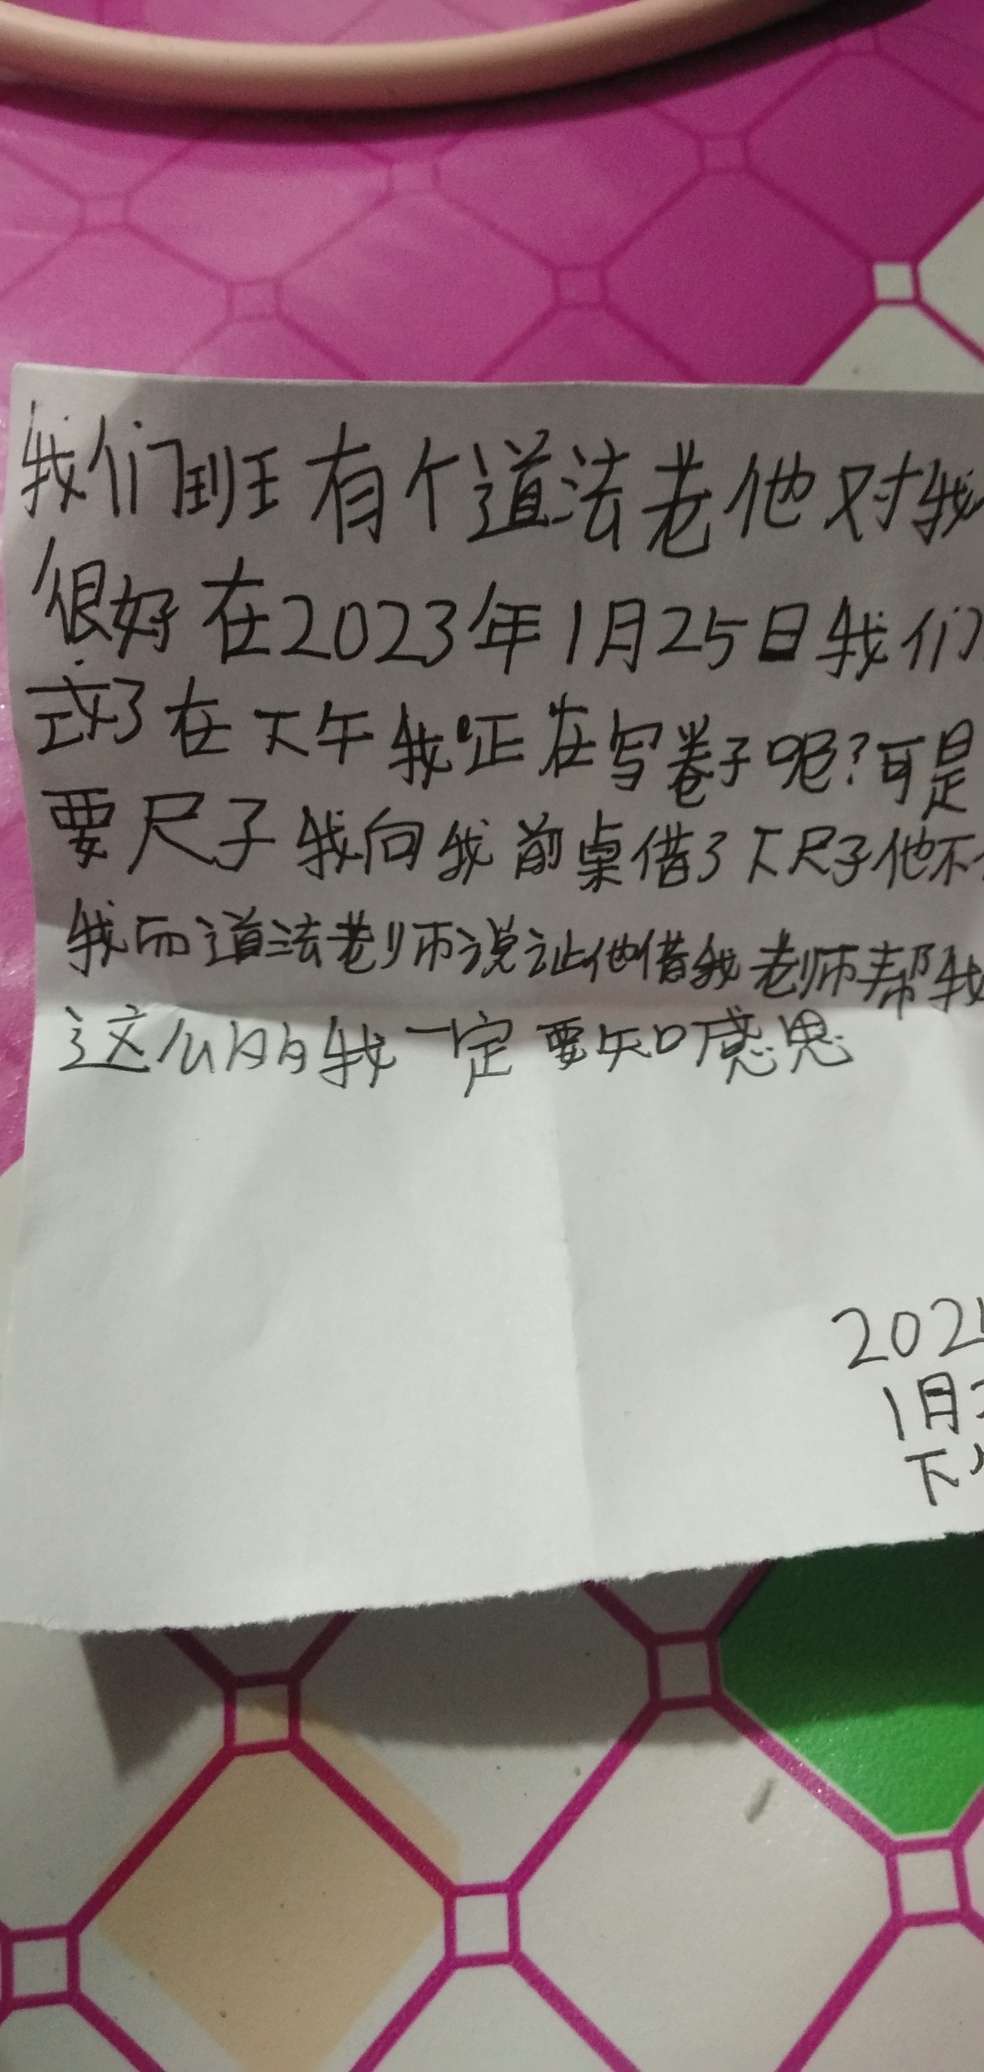 我们班有个道法老他对我
很好在2023年1月25日我们
式了在下午我正在写卷子呢?可是
要尺子我向我前桌借了下尺子他不
我而道法老师说让他借我老师帮我
这么的我一定要知感恩
202
1月
下